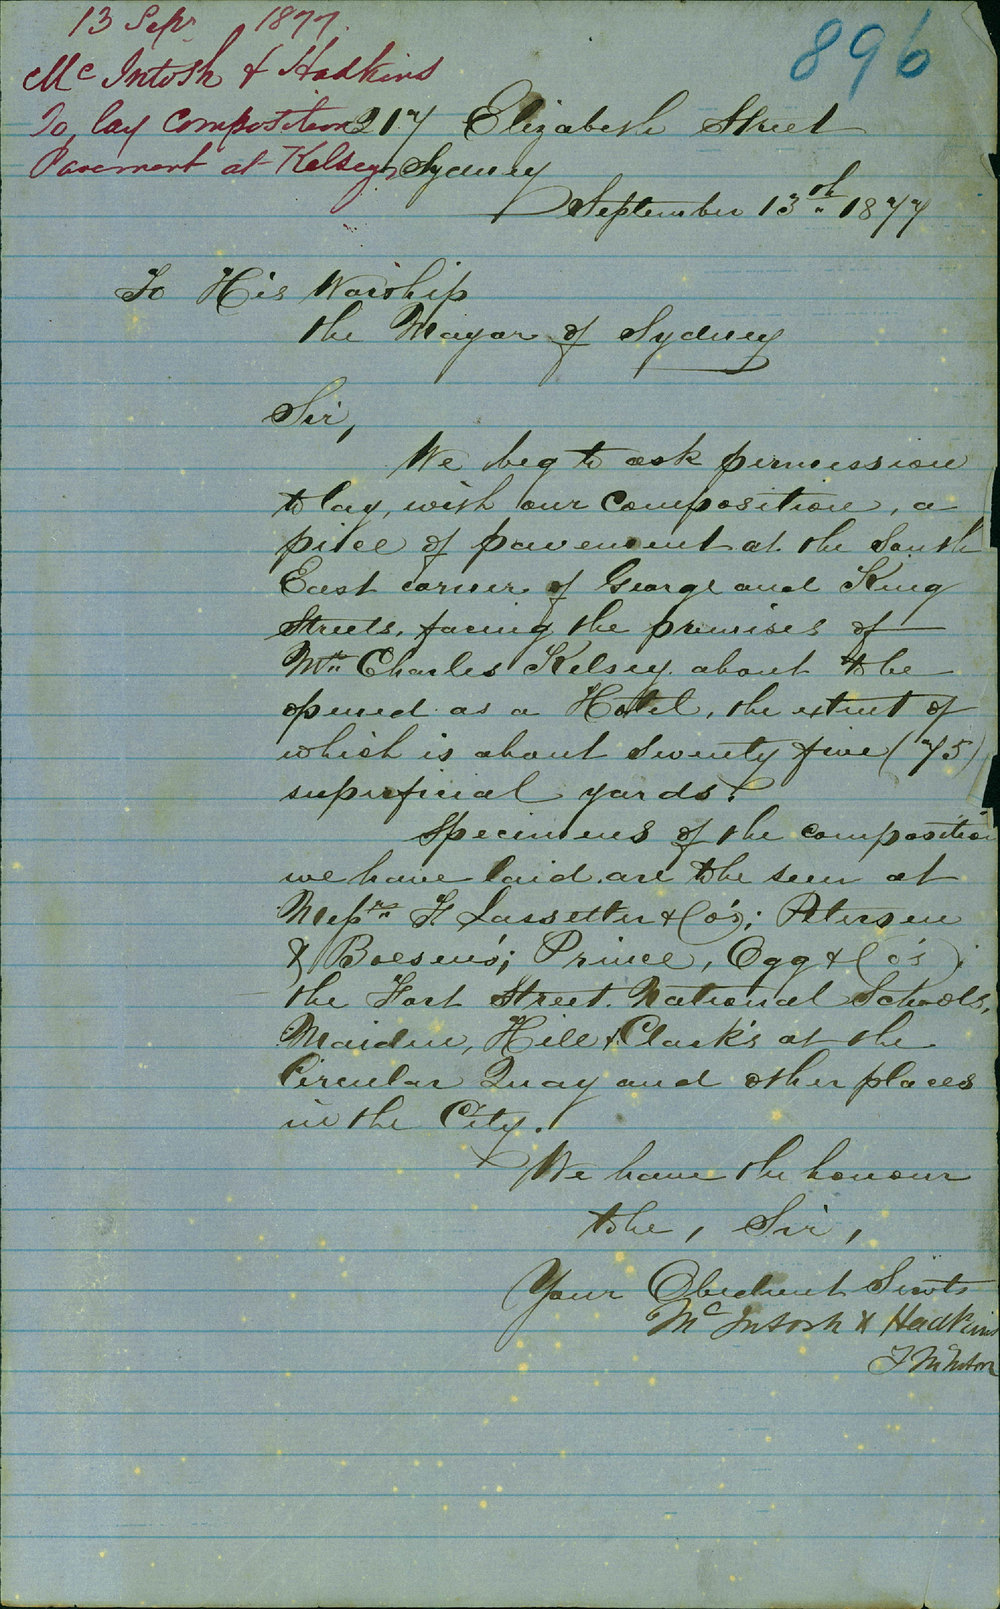 13 Sepr 1877.
896
Mc Intosh & Hadkins
To lay Composition
Pavement at Kelseys
217 Elizabeth Street
Sydney
September 13th 1877
To His Worship
the Mayor of Sydney
Sir,
We beg to ask permission
to lay, with our Composition, a
piece of pavement at the South
East corner of George and King
Streets, facing the premises of
Mr Charles Kelsey about to be
opened as a Hotel, the extent of
which is about seventy five (75)
superficial yards.
Specimens of the composition
we have laid are to be seen at
Messrs F Lassetter & Co's; Petersen
& Boesen's; Prince, Ogg & Co's;
the Fort Street National Schools,
Maiden, Hill & Clark's at the
Circular Quay and other places
in the City.
We have the honour
to be, Sir,
Your Obedient Servts
Mc Intosh & Hadkins